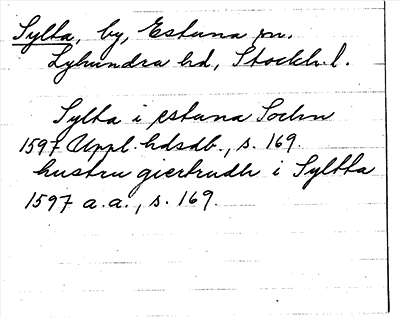 Sylta, by, Estuna sn.
Lyhundra hd, Stockh. l.
Sylta i estuna Sochn
1597 Uppl. hdsdb., s. 169.
hustru giertrudh i Syltta
1597 a.a., s. 169.